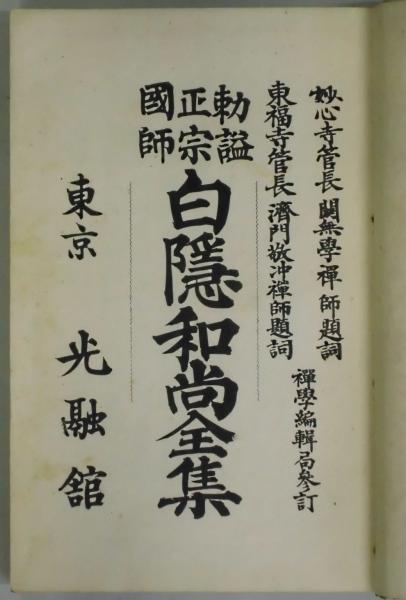 妙心寺管長 関無學禪師題詞
東福寺管長 濟門敬冲禪師題詞
禪學編輯局參訂
勅謚
正宗
國師
白隱和尚全集
東京 光融舘